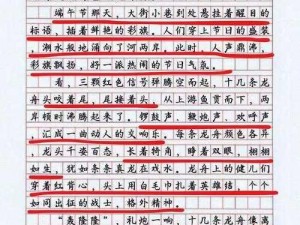 端午节那天，大街小巷到处悬挂着醒目的
标语，插着鲜艳的彩旗，人们穿上节日的盛装
，潮水般地涌向了河两岸，此时，人声鼎沸，
彩旗飘扬，好一派热闹的节日气氛。
看，三颗红色信号弹腾空而起，十几条龙
舟头咬着尾，尾接着头，从上游鱼贯而下，两
岸顿时沸腾起来了。锣鼓声、鞭炮声、欢呼声
汇成一曲动人的交响乐。每条龙舟颜色各异
，龙头千姿百态，长着犄角，睁着双眼，栩栩
如生，犹如条条真龙在戏水。龙舟上的健儿们
穿着红背心，头上用白毛巾扎着英雄结，个个
如同出征的战士，格外精神。
“轰隆隆”，礼炮一响，十几条龙舟像离